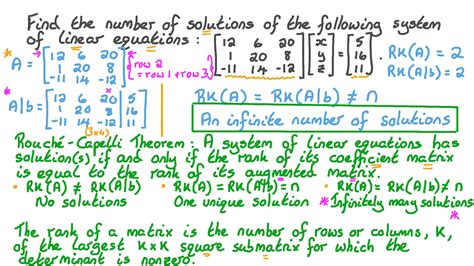 Find the number of solutions of the following system
of linear equations : [12 6 20
1 20 8
-11 14 -12] [x
y
z] = [5
16
11] . RK(A) = 2
RK(A|b) = 2
* A = [12 6 20
1 20 8
-11 14 -12] ] row 2
= row 1 + row 3
A|b = [12 6 20 | 5
1 20 8 | 16
-11 14 -12 | 11]
(3x4)
RK(A) = RK(A|b) ≠ n
An infinite number of solutions
Rouché - Capelli Theorem : A system of linear equations has
solution(s) if and only if the rank of its coefficient matrix
is equal to the rank of its augmented matrix.
• RK(A) ≠ RK(A|b) • RK(A) = RK(A|b) = n • RK(A) = RK(A|b) ≠ n
No solutions One unique solution * Infinitely many solutions *
The rank of a matrix is the number of rows or columns, K,
of the largest K x K square submatrix for which the
determinant is nonzero.